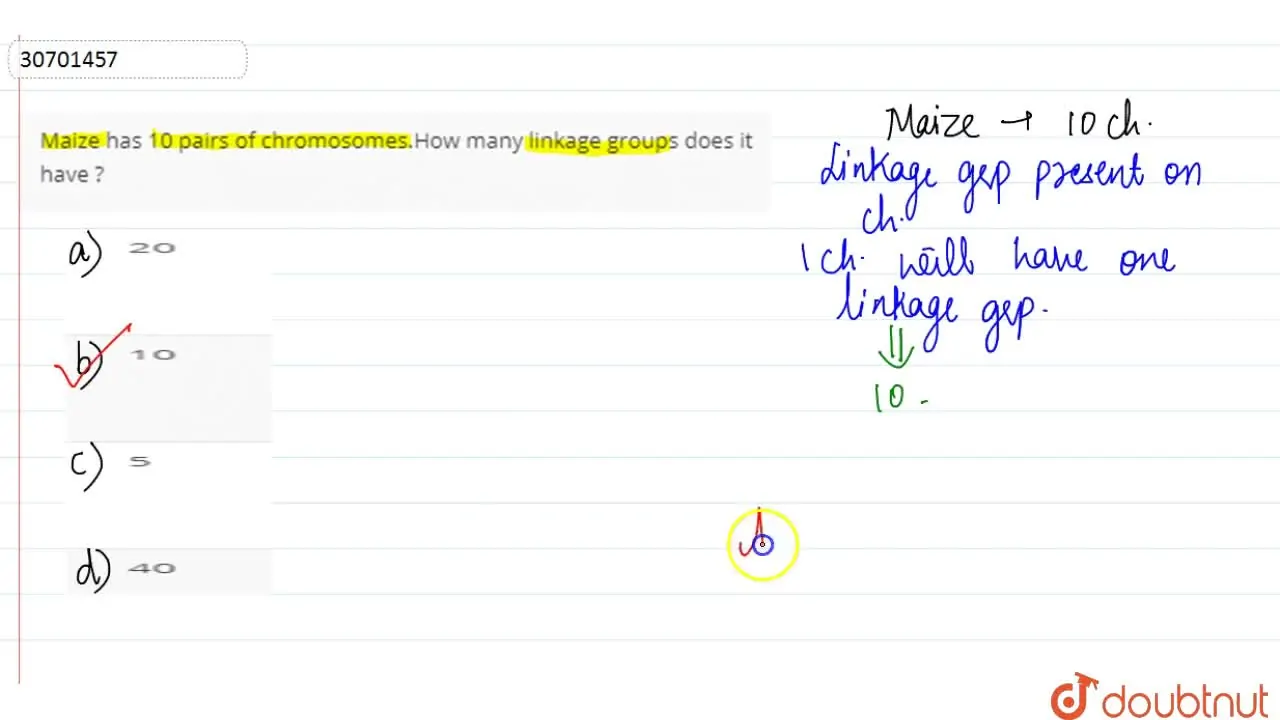 30701457
Maize has 10 pairs of chromosomes.How many linkage groups does it
have ?
a) 20
b) 10
c) 5
d) 40
Maize → 10 ch.
Linkage grp present on
ch.
1 ch. will have one
linkage grp.
⇓
10 -
doubtnut